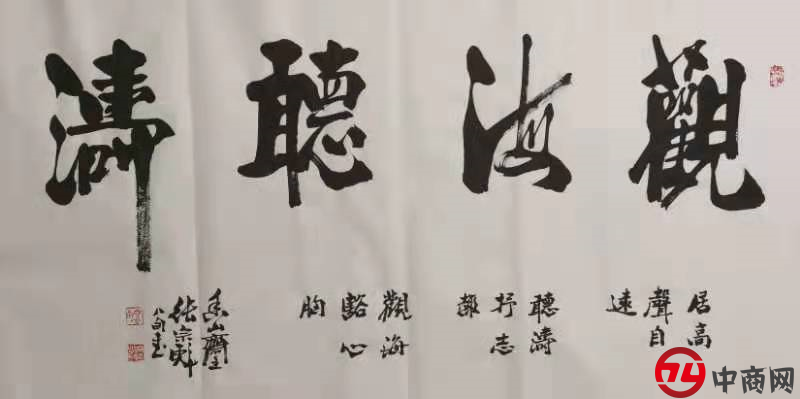 觀海聽濤
居高
聲自
遠
聽濤
抒志
觀海
豁心
胸
山齋
張宗
八旬
中商网